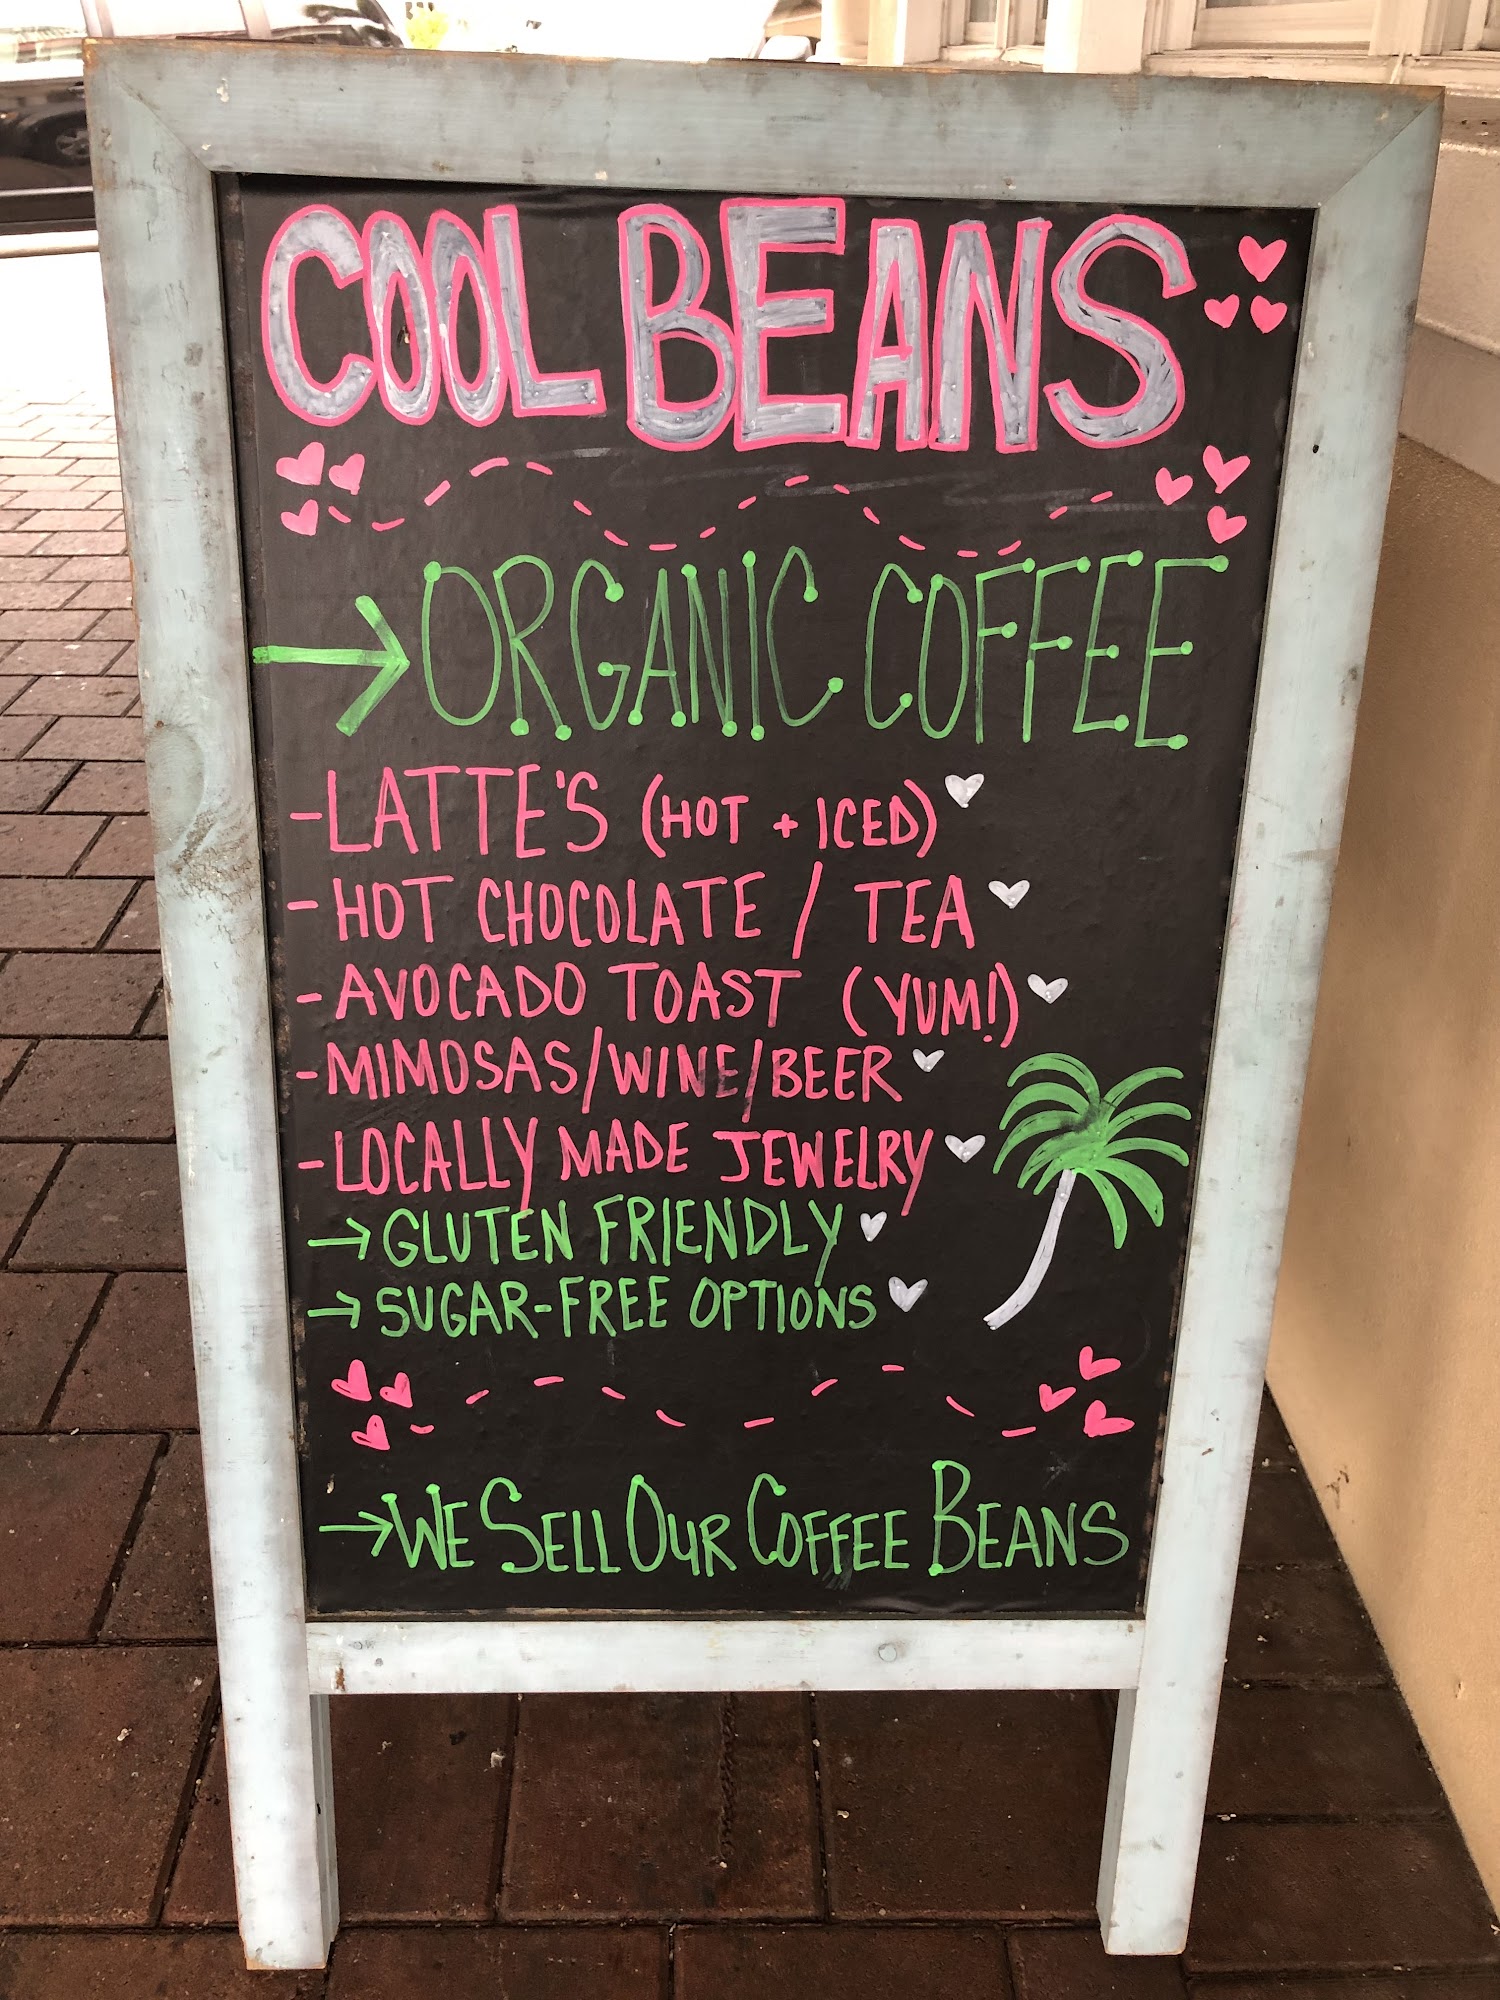 COOL BEANS
→ ORGANIC COFFEE
- LATTE'S (HOT + ICED)
- HOT CHOCOLATE / TEA
- AVOCADO TOAST (YUM!)
- MIMOSAS/WINE/BEER
- LOCALLY MADE JEWELRY
→ GLUTEN FRIENDLY
→ SUGAR-FREE OPTIONS
→ WE SELL OUR COFFEE BEANS